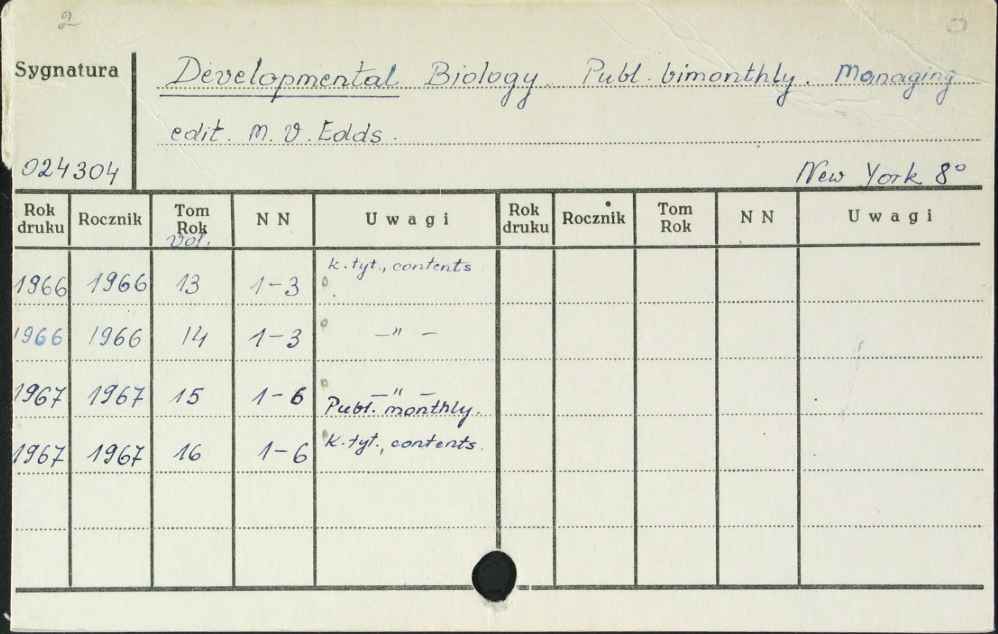 2
Sygnatura
Developmental Biology. Publ. bimonthly. Managing
edit. M. V. Edds.
024304
New York 8°
Rok druku Rocznik Tom Rok N N Uwagi Rok druku Rocznik Tom Rok N N Uwagi
Vol.
k. tyt., contents
1966 1966 13 1-3
1966 1966 14 1-3 —"—
1967 1967 15 1-6 —"—
Publ. monthly.
1967 1967 16 1-6 k. tyt., contents.